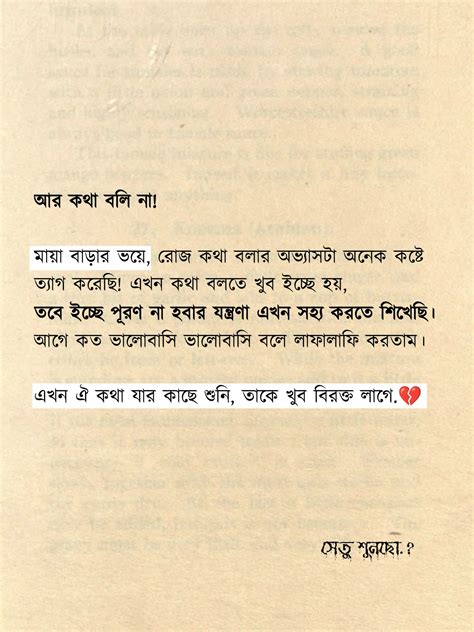 আর কথা বলি না!
মায়া বাড়ার ভয়ে, রোজ কথা বলার অভ্যাসটা অনেক কষ্টে
ত্যাগ করেছি! এখন কথা বলতে খুব ইচ্ছে হয়,
তবে ইচ্ছে পূরণ না হবার যন্ত্রণা এখন সহ্য করতে শিখেছি।
আগে কত ভালোবাসি ভালোবাসি বলে লাফালাফি করতাম।
এখন ঐ কথা যার কাছে শুনি, তাকে খুব বিরক্ত লাগে।💔
সেতু শুনছো.?